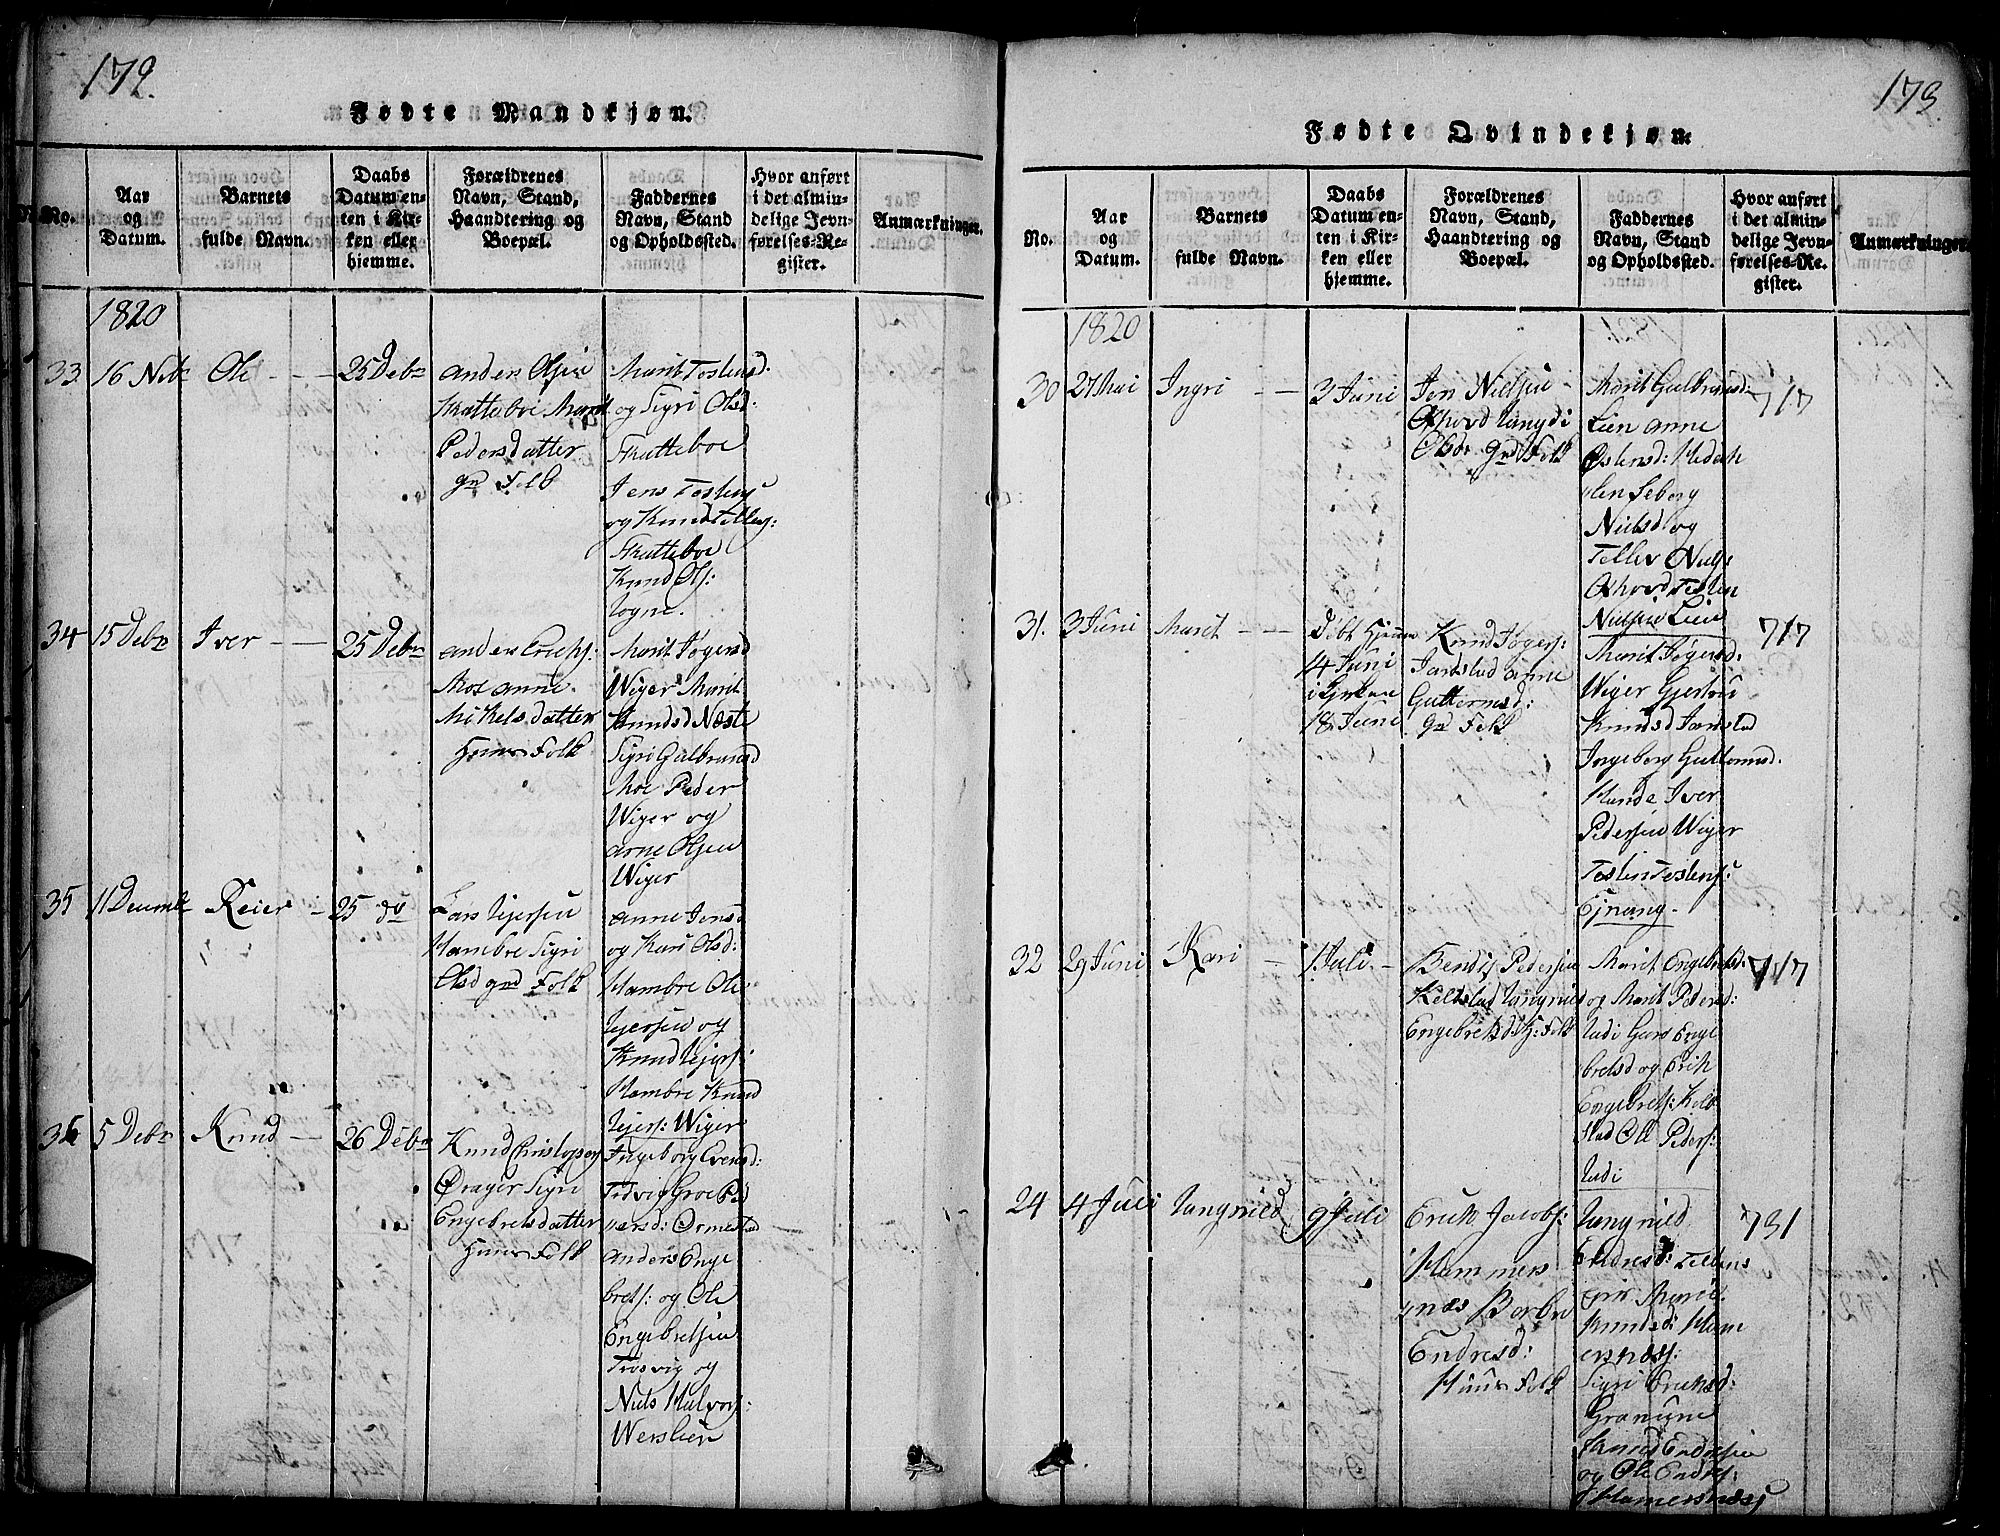 172.
Fødte Mandkjøn.
No.
Aar
og
Datum.
Barnets
fulde Navn.
Daabs
Datum en-
ten i Kir-
ken eller
hjemme.
Forældrenes
Navn, Stand,
Haandtering og
Boepæl.
Faddernes
Navn, Stand
og Opholdssted.
Hvor anført
i det almin-
delige Jevn-
førelses-Re-
gister.
Anmærkninger.
1820
33
16 Nvbr
Ole
25 Debr
Anders Olsen
Skattebøe Marit
Pedersdatter
grd Folk
Marit Tostensd:
og Sigri Olsd:
Skattebøe
Jens Tostens:
og Knud Tollefs:
Skattebøe
Knud Ols:
Togne.
34
15 Debr
Iver
25 Debr
Anders Eriks:
Moe Anne
Mikelsdatter
Huus Folk
Marit Jøgersd
Wiger Marit
Knudsd Næste
Sigri Gulbransd
Moe Peder
Wiger og
Arne Olsen
Wiger
35
11 Decembr
Reier
25 do
Lars Rejersen
Hambre Sigri
Olsd grd Folk
Anne Jensd
og Kari Olsd:
Hambre Ole
Rejersen og
Knud Rejers:
Hambre Knud
Rejers: Wiger
36
5 Debr
Knud
26 Debr
Knud Cristopsen
Qrager Sigri
Engebretsdatter
Huus Folk
Ingeborg Evensd:
Tosvig Groe Pe
dersd: Ormestad
Anders Enge
brets: og Ole
Engebretsen
Trosvig og
Niels Halvors:
Werslien
173.
Fødte Qvindekjøn.
No.
Aar
og
Datum.
Barnets
fulde Navn.
Daabs
Datum en-
ten i Kir-
ken eller
hjemme.
Forældrenes
Navn, Stand,
Haandtering og
Boepæl.
Faddernes
Navn, Stand
og Opholdssted.
Hvor anført
i det almin-
delige Jevn-
førelses-Re-
gister.
Anmærkninger.
1820
30
27 Mai
Ingri
3 Juni
Jen Nielsen
Oxhovd Rangdi
Olsdr grd Folk
Marit Gulbransd:
Lien Anne
Østensd: Hedal
len Seborg
Nielsd og
Tollev Niels
Oxhovd Tosten
Nielsen Lien
717
31.
3 Juni
Marit
Døbt Hjemme
14 Juni
i Kirken
18 Juni
Knud Jøgers:
Jarstad Anne
Guttormsd:
grd Folk
Marit Jøgersd:
Wiger Gjertru
Knudsd Jarstad
Ingeborg Guttormsd.
Hande Iver
Pedersen Wiger
Tosten Tostens:
Ejnang.
717
32
29 Juni
Kari
1 Juli
Bendix Pedersen
Keltstad Rangnild
Engebretsd: H: Folk
Marit Engebretsd:
og Marit Pedersd:
Rudi Guro Enge
bretsd og Erik
Engebrets: Kelt
stad Ole Peders:
Rudi
717
24
4 Juli
Rangnild
9 Juli
Erik Jacobs:
Hammers
næs Barbro
Endresd:
Huus Folk
Rangnild
Endresd:
Marie
Knudsd: Ham
ersnæs:
Sigri Eriksd:
Granum
Knud Endresen
og Ole Endres:
Hamersnæs
731